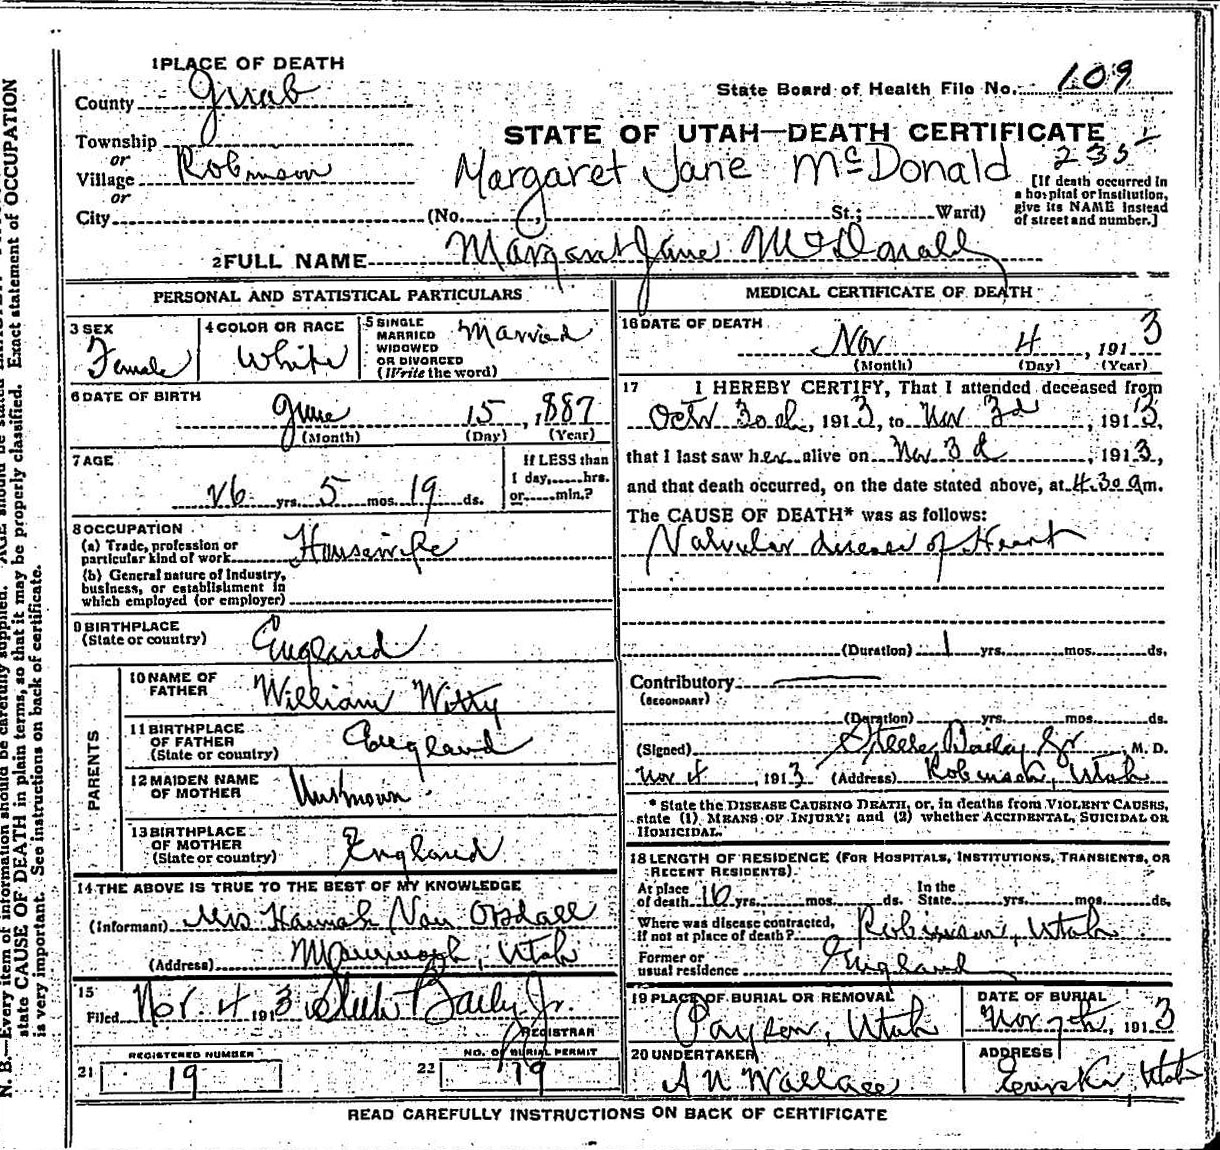 1 PLACE OF DEATH
County Juab
State Board of Health File No. 109
Township
or
Village Robinson
or
City (No. , St.; Ward)
STATE OF UTAH—DEATH CERTIFICATE
Margaret Jane McDonald 235
[If death occurred in a hospital or institution, give its NAME instead of street and number.]
2 FULL NAME Margaret Jane McDonald
PERSONAL AND STATISTICAL PARTICULARS
3 SEX Female
4 COLOR OR RACE White
5 SINGLE MARRIED WIDOWED OR DIVORCED (Write the word) Married
6 DATE OF BIRTH June 15, 1887
(Month) (Day) (Year)
7 AGE 26 yrs. 5 mos. 19 ds.
If LESS than 1 day, hrs. or min.?
8 OCCUPATION
(a) Trade, profession or particular kind of work Housewife
(b) General nature of industry, business, or establishment in which employed (or employer)
9 BIRTHPLACE (State or country) England
PARENTS
10 NAME OF FATHER William Witty
11 BIRTHPLACE OF FATHER (State or country) England
12 MAIDEN NAME OF MOTHER Unknown
13 BIRTHPLACE OF MOTHER (State or country) England
14 THE ABOVE IS TRUE TO THE BEST OF MY KNOWLEDGE
(Informant) Mrs Hannah Van Orsdall
(Address) Mammoth, Utah
15
Filed Nov. 4 1913 Steele Baily Jr.
REGISTRAR
REGISTERED NUMBER
21 19
NO. OF BURIAL PERMIT
22 19
MEDICAL CERTIFICATE OF DEATH
16 DATE OF DEATH
Nov 4, 1913
(Month) (Day) (Year)
17 I HEREBY CERTIFY, That I attended deceased from
Octr 30th, 1913, to Nov 3d, 1913,
that I last saw her alive on Nov 3d, 1913,
and that death occurred, on the date stated above, at 4.30 am.
The CAUSE OF DEATH* was as follows:
Valvular disease of Heart
(Duration) 1 yrs. mos. ds.
Contributory
(SECONDARY)
(Duration) yrs. mos. ds.
(Signed) Steele Bailey Jr, M. D.
Nov 4, 1913 (Address) Robinson, Utah
* State the DISEASE CAUSING DEATH, or, in deaths from VIOLENT CAUSES, state (1) MEANS OF INJURY; and (2) whether ACCIDENTAL, SUICIDAL OR HOMICIDAL.
18 LENGTH OF RESIDENCE (FOR HOSPITALS, INSTITUTIONS, TRANSIENTS, OR RECENT RESIDENTS).
At place of death 16 yrs. mos. ds. In the State yrs. mos. ds.
Where was disease contracted, if not at place of death? Robinson, Utah
Former or usual residence England
19 PLACE OF BURIAL OR REMOVAL Payson, Utah
DATE OF BURIAL Nov 7th, 1913
20 UNDERTAKER A N Wallace
ADDRESS Utah
READ CAREFULLY INSTRUCTIONS ON BACK OF CERTIFICATE
N. B.—Every item of information should be carefully supplied. AGE should be stated
state CAUSE OF DEATH in plain terms, so that it may be properly classified. Exact statement of OCCUPATION
is very important. See instructions on back of certificate.